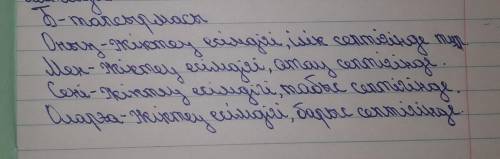 Б-тапсырмасы
Оның-жіктеу есімдігі, ілік септігінде тұр.
Мен-жіктеу есімдігі, атау септігінде.
Сені-жіктеу есімдігі, табыс септігінде.
Оларға-жіктеу есімдігі, барыс септігінде.